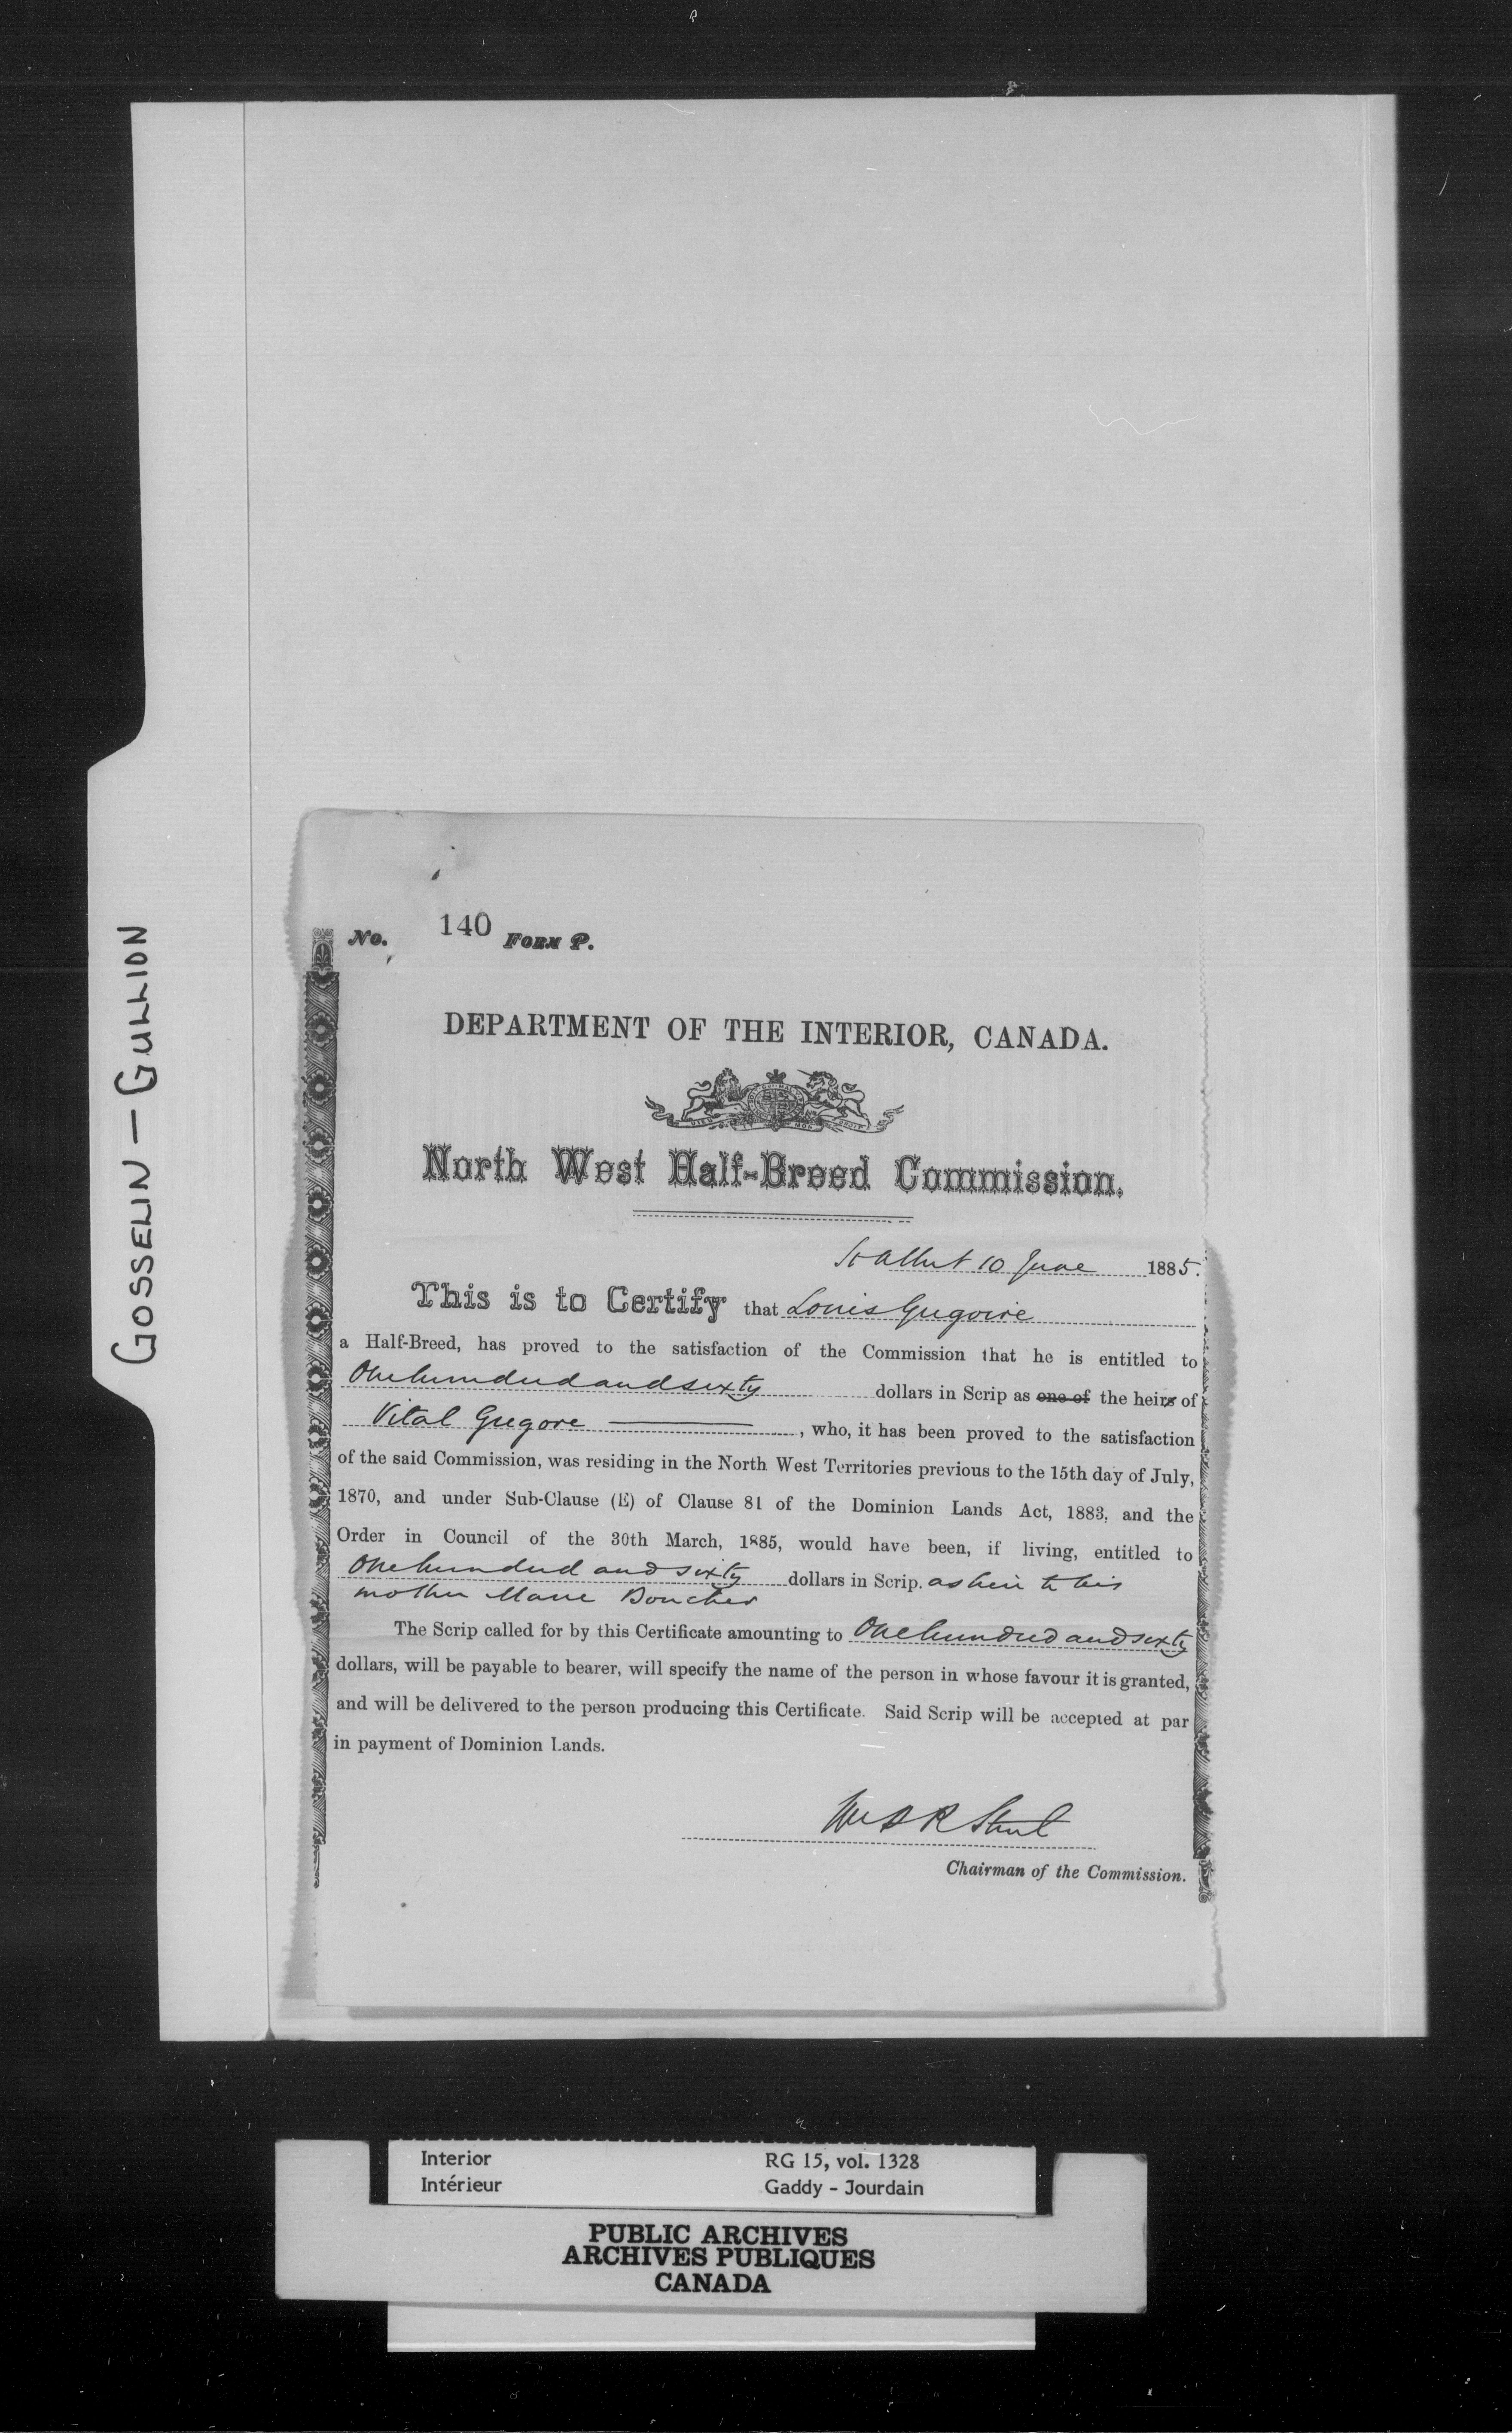 GOSSELIN — GULLION
No. 140 FORM P.
DEPARTMENT OF THE INTERIOR, CANADA.
North West Half-Breed Commission.
St Albert 10 June 1885.
This is to Certify that Louis Gregoire
a Half-Breed, has proved to the satisfaction of the Commission that he is entitled to
One hundred and sixty dollars in Scrip as one of the heirs of
Vital Gregore ———, who, it has been proved to the satisfaction
of the said Commission, was residing in the North West Territories previous to the 15th day of July,
1870, and under Sub-Clause (E) of Clause 81 of the Dominion Lands Act, 1883, and the
Order in Council of the 30th March, 1885, would have been, if living, entitled to
One hundred and sixty dollars in Scrip. as heir to his
mother Marie Boucher
The Scrip called for by this Certificate amounting to One hundred and sixty
dollars, will be payable to bearer, will specify the name of the person in whose favour it is granted,
and will be delivered to the person producing this Certificate. Said Scrip will be accepted at par
in payment of Dominion Lands.
Chairman of the Commission.
Interior
Intérieur
RG 15, vol. 1328
Gaddy - Jourdain
PUBLIC ARCHIVES
ARCHIVES PUBLIQUES
CANADA